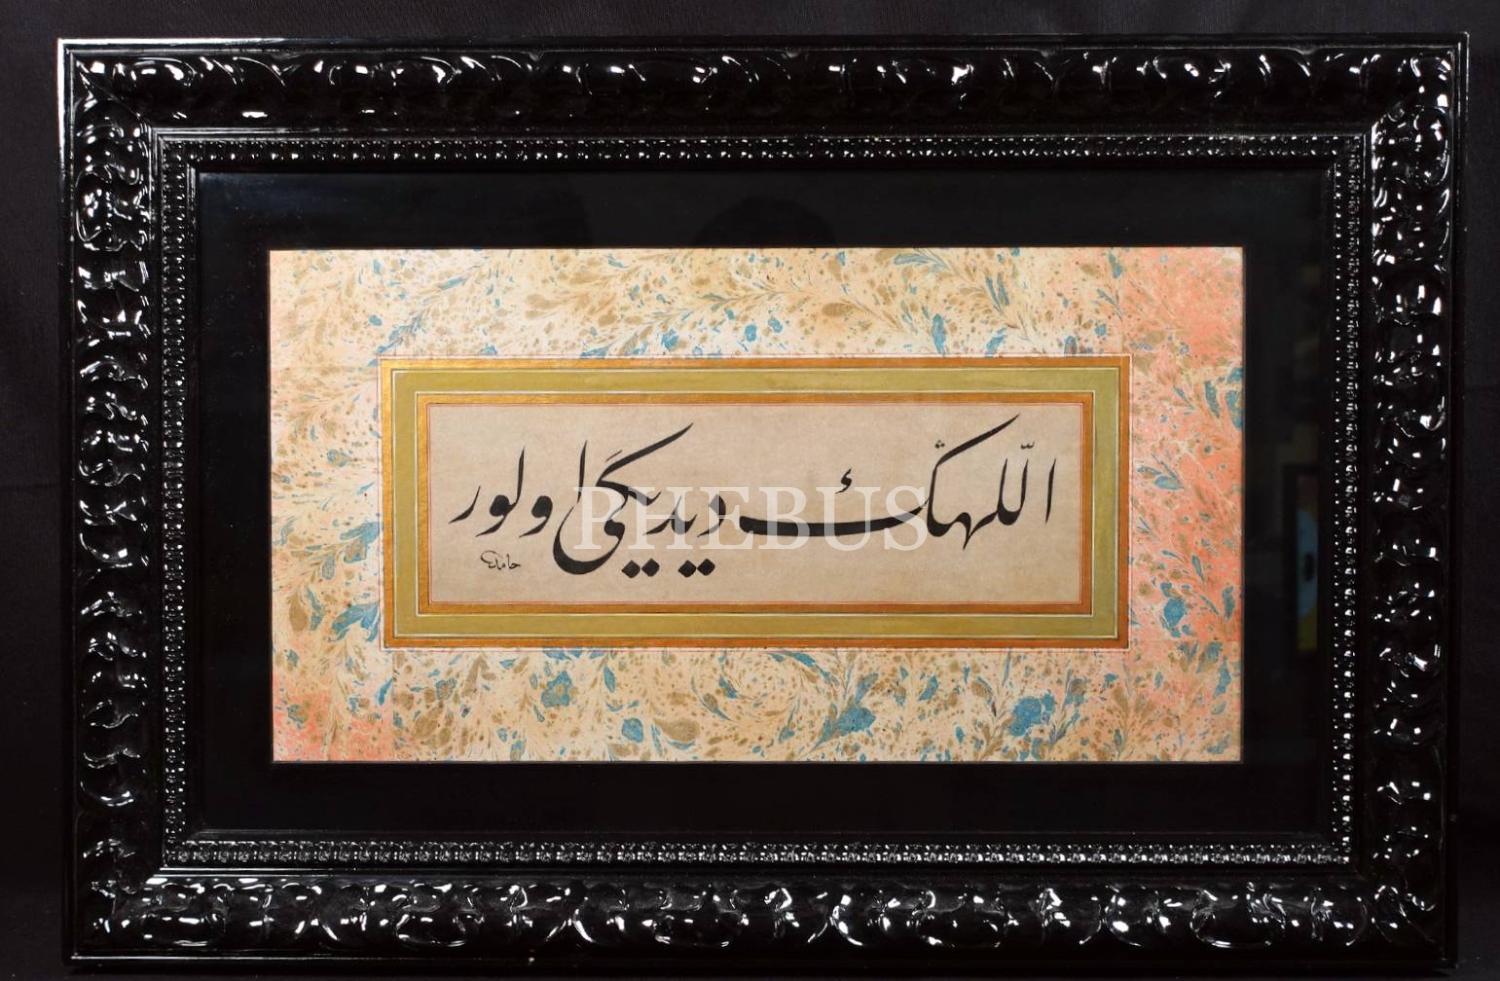 اللّهڭ ديديكى اولور
حامد
PHEBUS